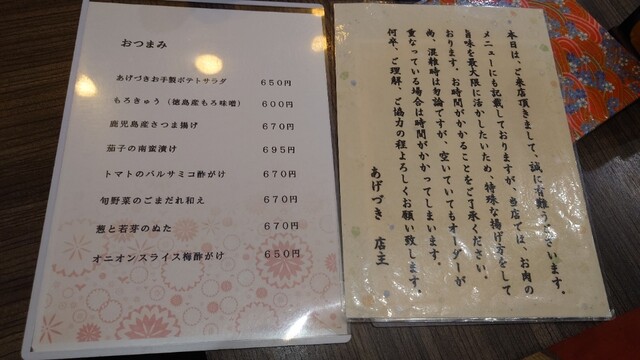 おつまみ
あげづきお手製ポテトサラダ 650円
もろきゅう（徳島産もろ味噌） 600円
鹿児島産さつま揚げ 670円
茄子の南蛮漬け 695円
トマトのバルサミコ酢がけ 670円
旬野菜のごまだれ和え 670円
葱と若芽のぬた 670円
オニオンスライス梅酢がけ 650円
本日は、ご来店頂きまして、誠に有難うございます。
メニューにも記載しておりますが、当店では、お肉の
旨味を最大限に活かしたいため、特殊な揚げ方をして
おります。お時間がかかることをご了承ください。
尚、混雑時は勿論ですが、空いていてもオーダーが
重なっている場合は時間がかかってしまいます。
何卒、ご理解、ご協力の程よろしくお願い致します。
あげづき 店主